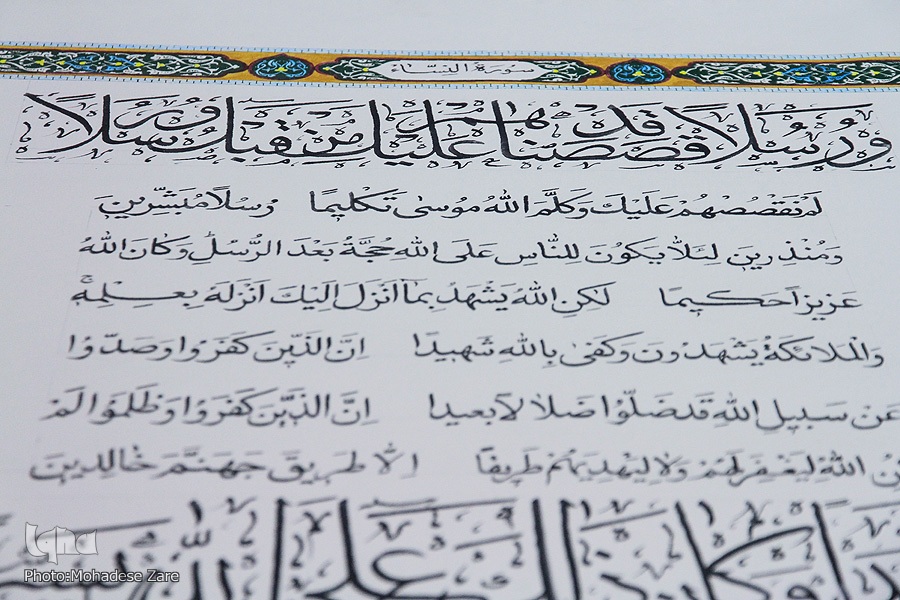 سورة النساء
وَرُسُلًا قَدْ قَصَصْنَاهُمْ عَلَيْكَ مِنْ قَبْلُ وَرُسُلًا
لَمْ نَقْصُصْهُمْ عَلَيْكَ وَكَلَّمَ اللهُ مُوسىٰ تَكْلِيمًا رُسُلًا مُبَشِّرِينَ
وَمُنْذِرِينَ لِئَلَّا يَكُونَ لِلنَّاسِ عَلَى اللهِ حُجَّةٌ بَعْدَ الرُّسُلِ وَكَانَ اللهُ
عَزِيزًا حَكِيمًا لٰكِنِ اللهُ يَشْهَدُ بِمَا اَنْزَلَ اِلَيْكَ اَنْزَلَهُ بِعِلْمِهِ
وَالْمَلائِكَةُ يَشْهَدُونَ وَكَفىٰ بِاللهِ شَهِيدًا اِنَّ الَّذِينَ كَفَرُوا وَصَدُّوا
عَنْ سَبِيلِ اللهِ قَدْ ضَلُّوا ضَلالًا بَعِيدًا اِنَّ الَّذِينَ كَفَرُوا وَظَلَمُوا لَمْ
اللهُ لِيَغْفِرَ لَهُمْ وَلا لِيَهْدِيَهُمْ طَرِيقًا اِلَّا طَرِيقَ جَهَنَّمَ خَالِدِينَ
وَكَانَ ذٰلِكَ عَلَى اللهِ
iqna
Photo:Mohadese Zare